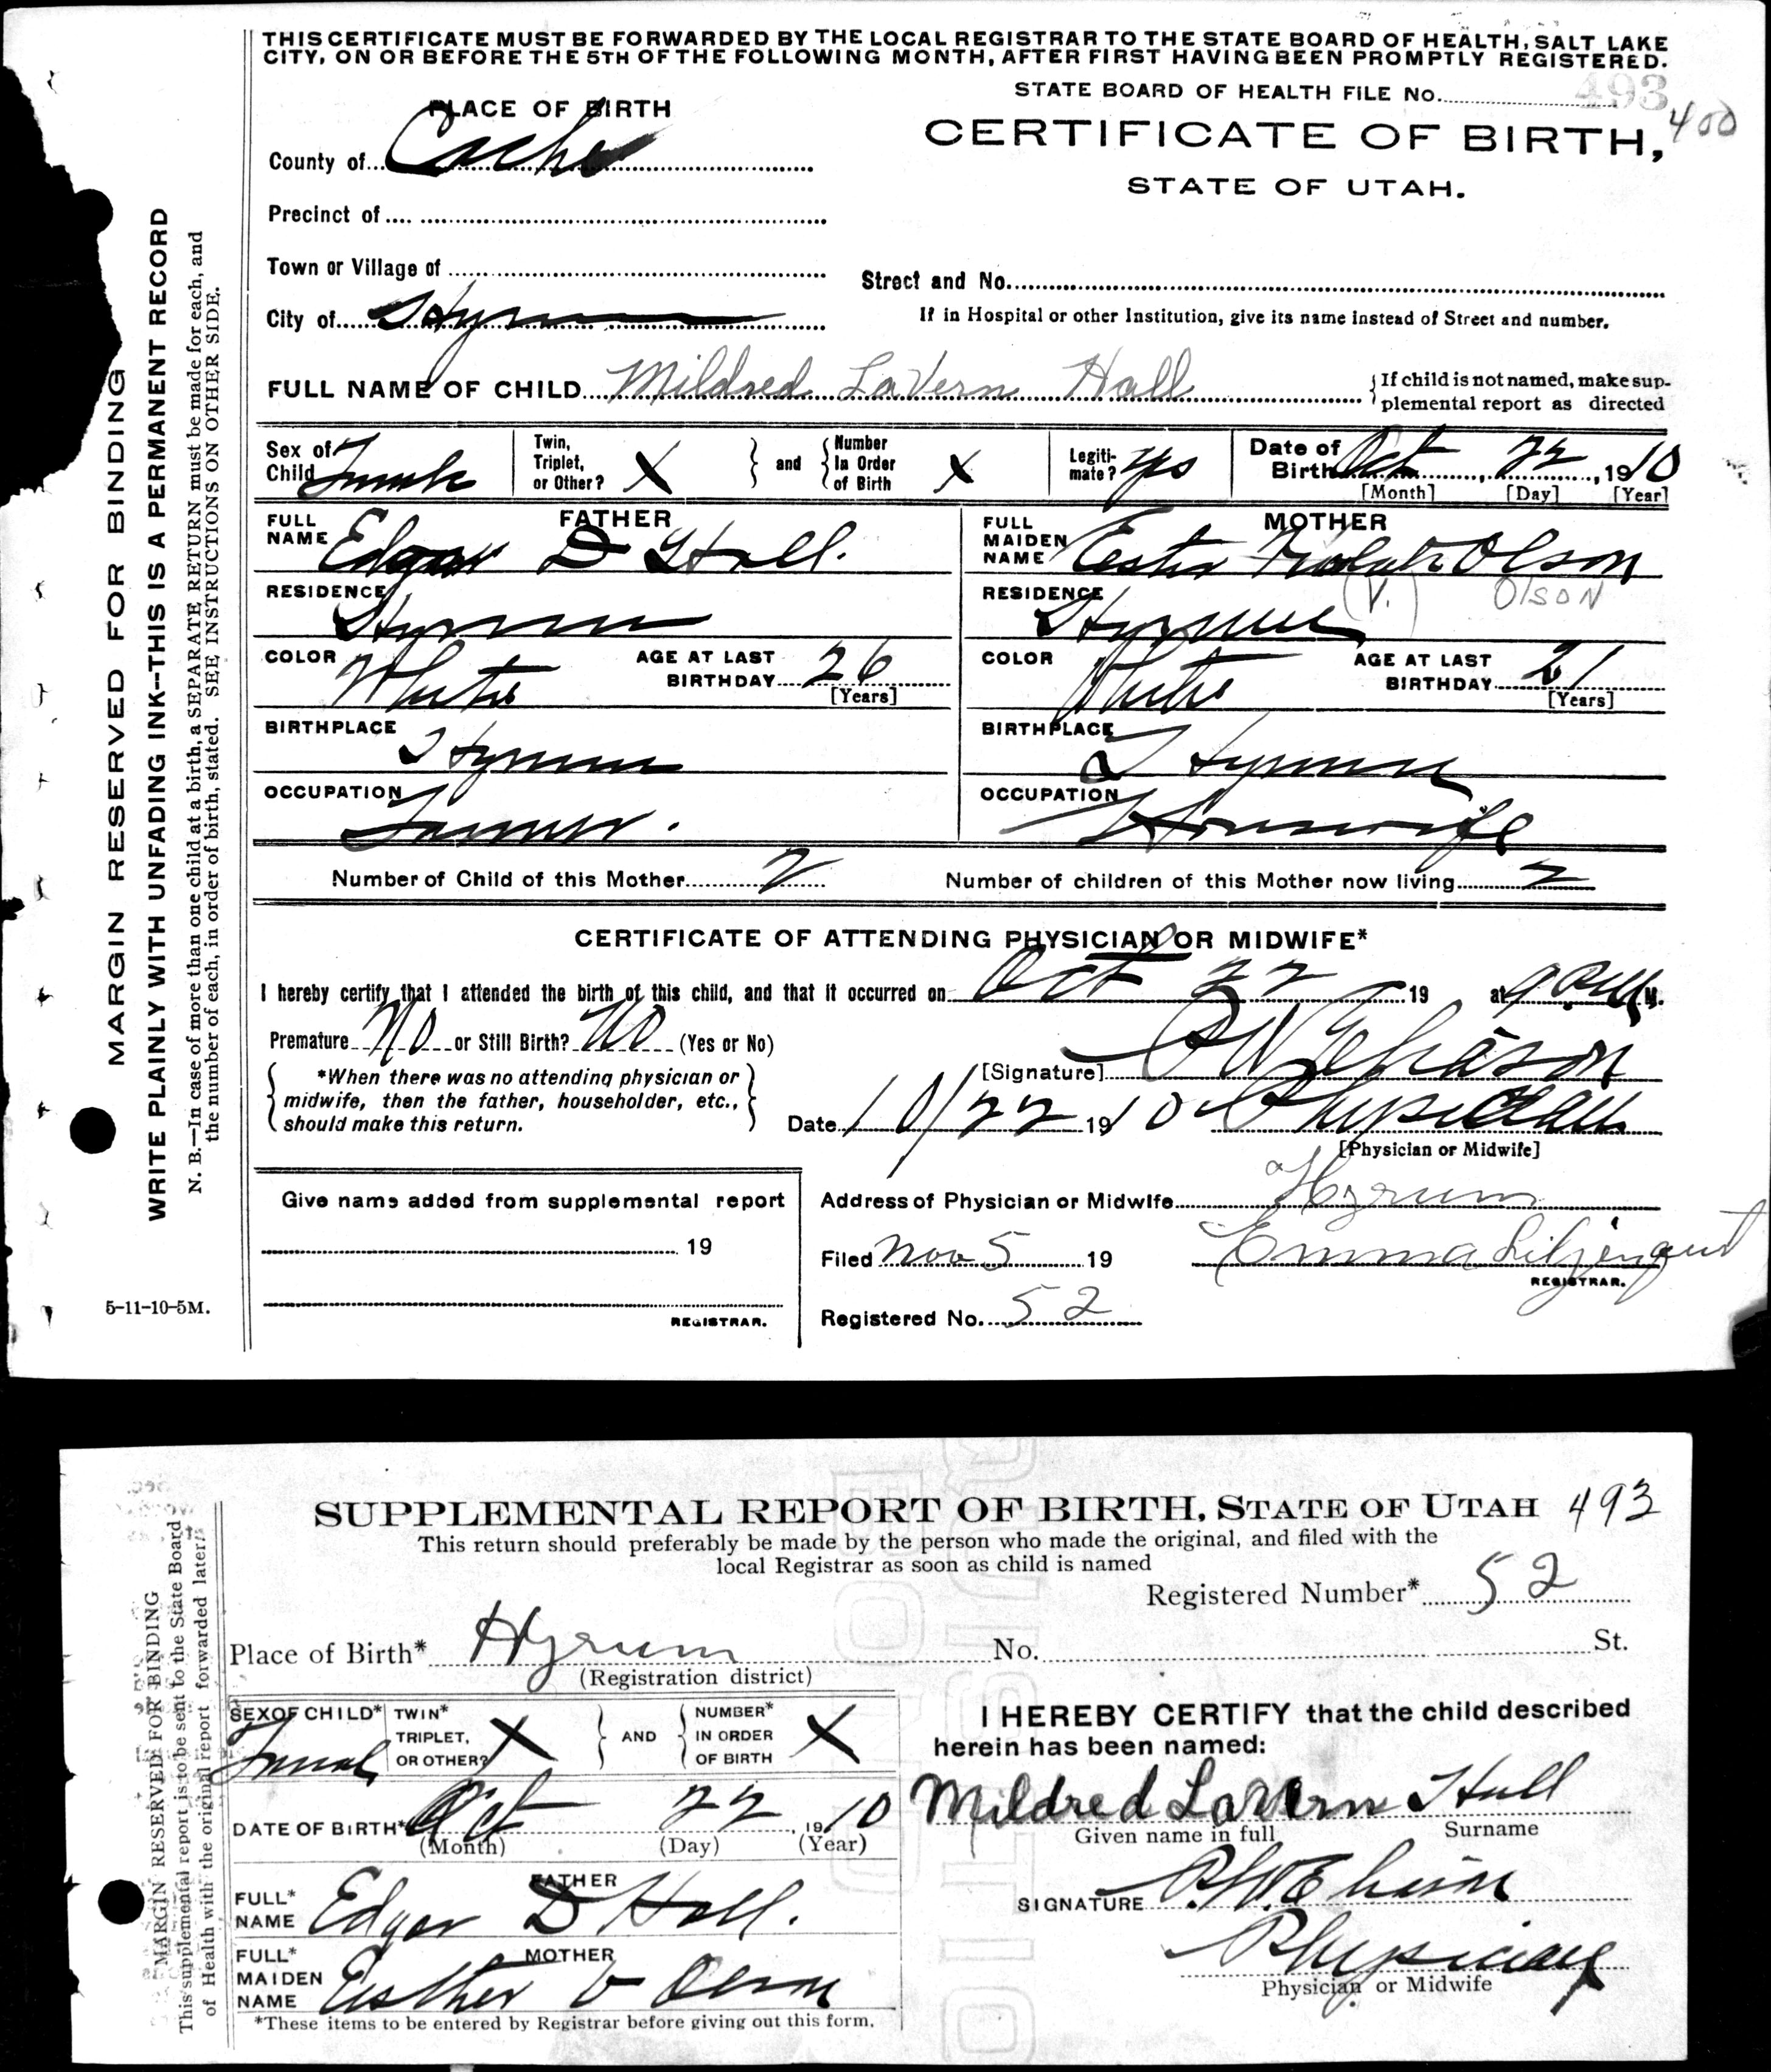 THIS CERTIFICATE MUST BE FORWARDED BY THE LOCAL REGISTRAR TO THE STATE BOARD OF HEALTH, SALT LAKE
CITY, ON OR BEFORE THE 5TH OF THE FOLLOWING MONTH, AFTER FIRST HAVING BEEN PROMPTLY REGISTERED.
STATE BOARD OF HEALTH FILE No. 493
400
PLACE OF BIRTH
CERTIFICATE OF BIRTH,
STATE OF UTAH.
County of Cache
Precinct of
Town or Village of
Street and No.
City of Hyrum
If in Hospital or other Institution, give its name instead of Street and number.
FULL NAME OF CHILD Mildred LaVern Hall
If child is not named, make sup-
plemental report as directed
Sex of Child Female
Twin, Triplet, or Other? X
and
Number In Order of Birth X
Legiti-mate? yes
Date of Birth Oct 22, 1910
[Month] [Day] [Year]
FATHER
FULL NAME Edgar D Hall.
RESIDENCE Hyrum
COLOR White
AGE AT LAST BIRTHDAY 26
[Years]
BIRTHPLACE Hyrum
OCCUPATION Farmer.
MOTHER
FULL MAIDEN NAME Ester Olson
(V.) Olson
RESIDENCE Hyrum
COLOR White
AGE AT LAST BIRTHDAY 21
[Years]
BIRTHPLACE Hyrum
OCCUPATION Housewife
Number of Child of this Mother 2
Number of children of this Mother now living 2
CERTIFICATE OF ATTENDING PHYSICIAN OR MIDWIFE*
I hereby certify that I attended the birth of this child, and that it occurred on Oct 22 19 at 9 M.
Premature No or Still Birth? No (Yes or No)
*When there was no attending physician or
midwife, then the father, householder, etc.,
should make this return.
[Signature]
Date 10/22 1910 Physician
[Physician or Midwife]
Give name added from supplemental report
19
REGISTRAR.
Address of Physician or Midwife Hyrum
Filed Nov 5 19
Emma Liljenquist
REGISTRAR.
Registered No. 52
5-11-10-5M.
MARGIN RESERVED FOR BINDING
WRITE PLAINLY WITH UNFADING INK--THIS IS A PERMANENT RECORD
N. B.—In case of more than one child at a birth, a SEPARATE RETURN must be made for each, and
the number of each, in order of birth, stated. SEE INSTRUCTIONS ON OTHER SIDE.
SUPPLEMENTAL REPORT OF BIRTH, STATE OF UTAH 493
This return should preferably be made by the person who made the original, and filed with the
local Registrar as soon as child is named
Registered Number* 52
Place of Birth* Hyrum
(Registration district)
No. St.
SEX OF CHILD* Female
TWIN* TRIPLET, OR OTHER? X
AND
NUMBER* IN ORDER OF BIRTH X
DATE OF BIRTH* Oct 22, 1910
(Month) (Day) (Year)
FATHER
FULL* NAME Edgar D Hall.
MOTHER
FULL* MAIDEN NAME Esther V Olson
*These items to be entered by Registrar before giving out this form.
I HEREBY CERTIFY that the child described
herein has been named:
Mildred LaVern Hall
Given name in full Surname
SIGNATURE
Physician
Physician or Midwife
MARGIN RESERVED FOR BINDING
This supplemental report is to be sent to the State Board
of Health with the original report forwarded later.